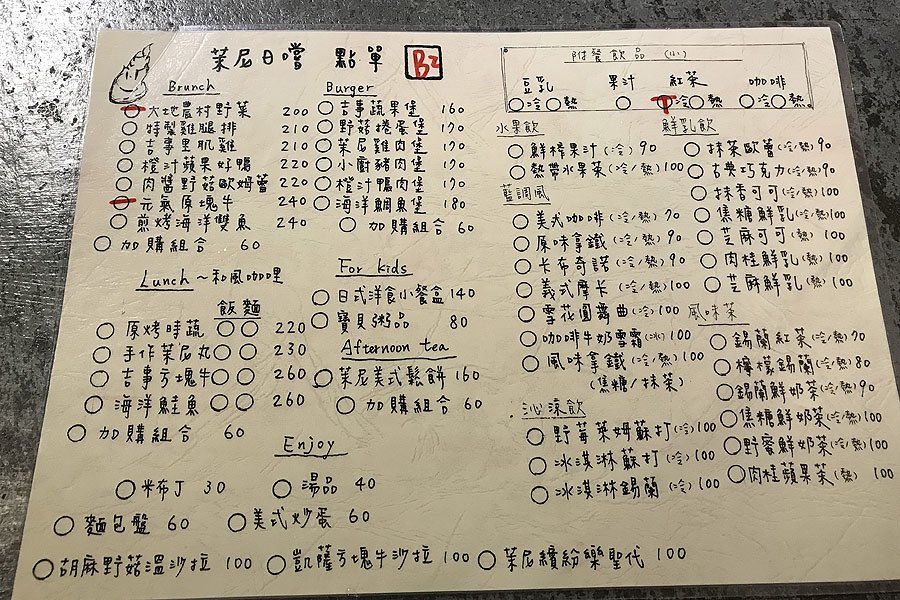 茉尼日嚐 點單 B2
Brunch
大地農村野菜 200
特製雞腿排 210
吉事里肌雞 210
橙汁蘋果好鴨 220
肉醬野菇歐姆蕾 220
元氣原塊牛 240
煎烤海洋雙魚 240
加購組合 60
Burger
吉事蔬果堡 160
野菇捲蛋堡 170
茉尼雞肉堡 170
小廚豬肉堡 170
橙汁鴨肉堡 170
海洋鯛魚堡 180
加購組合 60
Lunch ~和風咖哩
飯 麵
原烤時蔬 220
手作茉尼丸 230
吉事方塊牛 260
海洋鮭魚 260
加購組合 60
For kids
日式洋食小餐盒 140
寶貝粥品 80
Afternoon tea
茉尼美式鬆餅 160
加購組合 60
Enjoy
米布丁 30
湯品 40
麵包盤 60
美式炒蛋 60
胡麻野菇溫沙拉 100
凱薩方塊牛沙拉 100
茉尼繽紛樂聖代 100
附餐飲品 (小)
豆乳 果汁 紅茶 咖啡
冷 熱 冷 熱 冷 熱
水果飲
鮮榨果汁(冷) 90
熱帶水果茶(熱) 100
藍調風
美式咖啡(冷/熱) 70
原味拿鐵(冷/熱) 90
卡布奇諾(冷/熱) 90
義式摩卡(冷/熱) 100
雪花圓舞曲(冷) 100
咖啡牛奶雪霜(冰) 100
風味拿鐵(冷/熱) 100
(焦糖/抹茶)
沁涼飲
野莓萊姆蘇打(冷) 100
冰淇淋蘇打(冷) 100
冰淇淋錫蘭(冷) 100
鮮乳飲
抹茶歐蕾(冷/熱) 90
古典巧克力(冷/熱) 90
抹香可可(冷/熱) 100
焦糖鮮乳(冷/熱) 100
芝麻可可(熱) 100
肉桂鮮乳(熱) 100
芝麻鮮乳(熱) 100
風味茶
錫蘭紅茶(冷/熱) 70
檸檬錫蘭(冷/熱) 80
錫蘭鮮奶茶(冷/熱) 90
焦糖鮮奶茶(冷/熱) 100
野蜜鮮奶茶(冷/熱) 100
肉桂蘋果茶(熱) 100